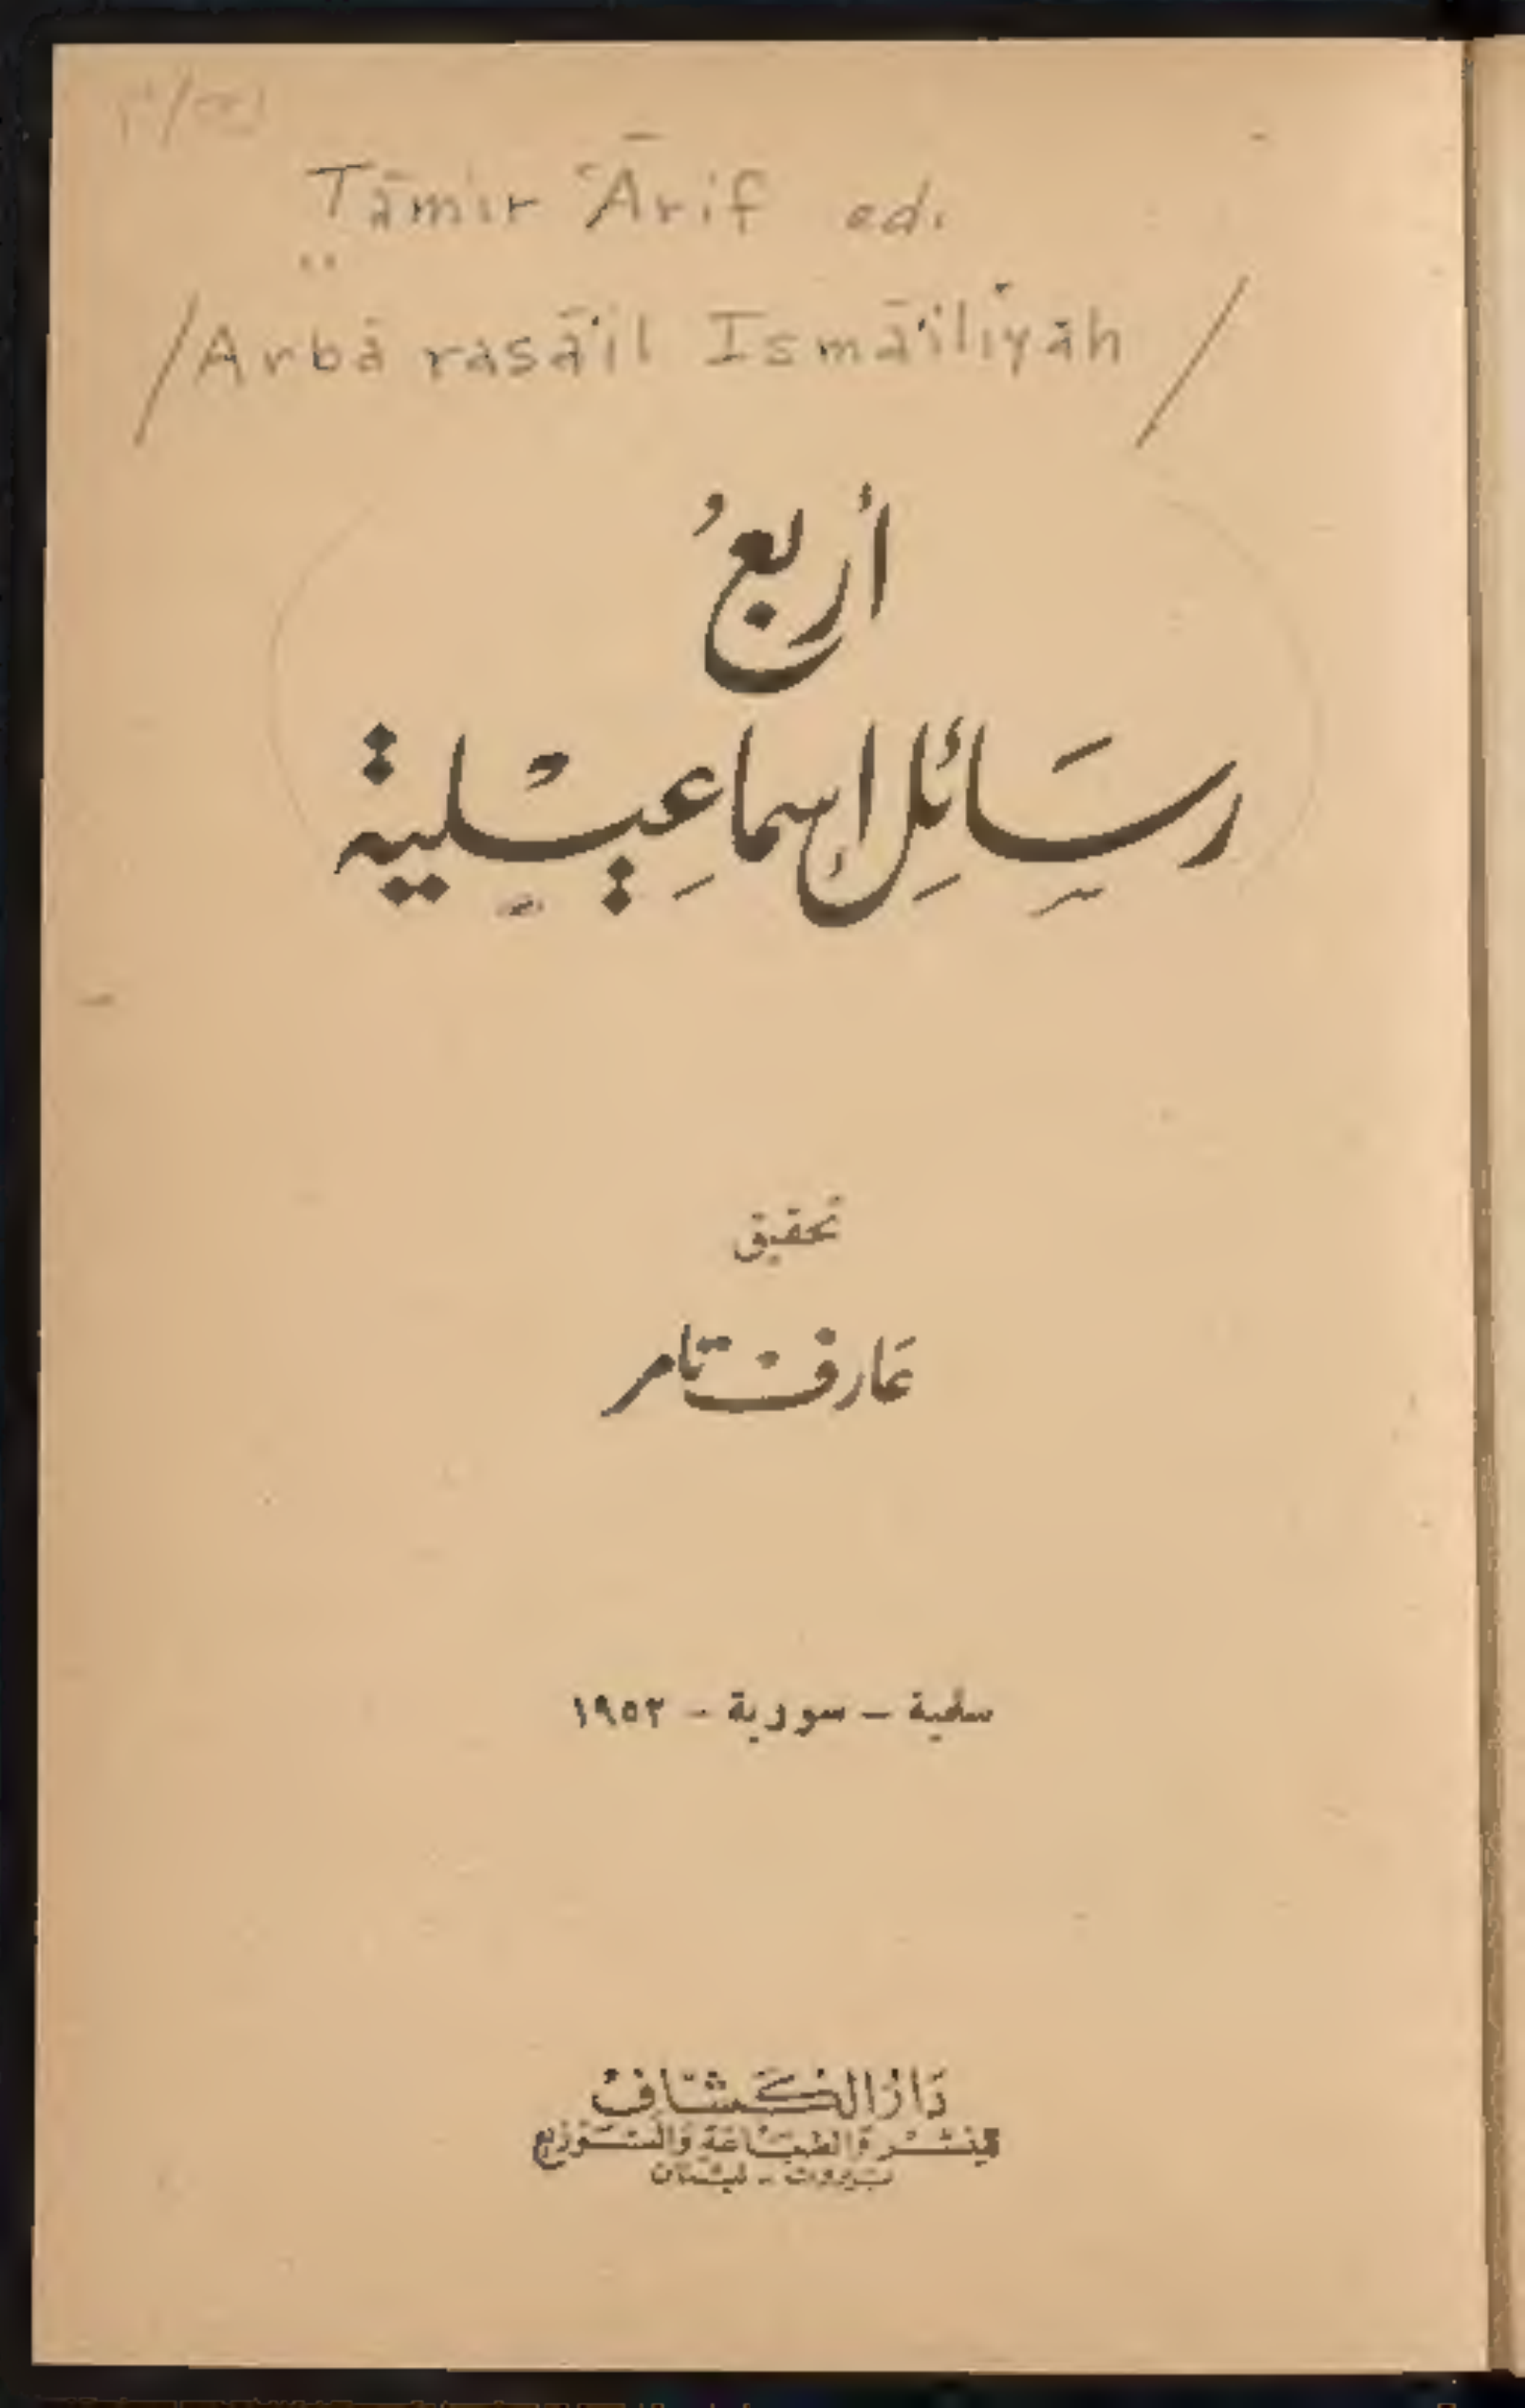 Tāmir ʿĀrif ed.
/Arbaʿ rasāʾil Ismāʿīlīyah/
أربعُ
رسَائِل إسماعِيْلية
تحقيق
عَارف تامر
سلمية – سورية – ١٩٥٢
دَار الكَشّاف
للنشر وَالطبَاعَة وَالتَوزيع
بيروت - لبنان